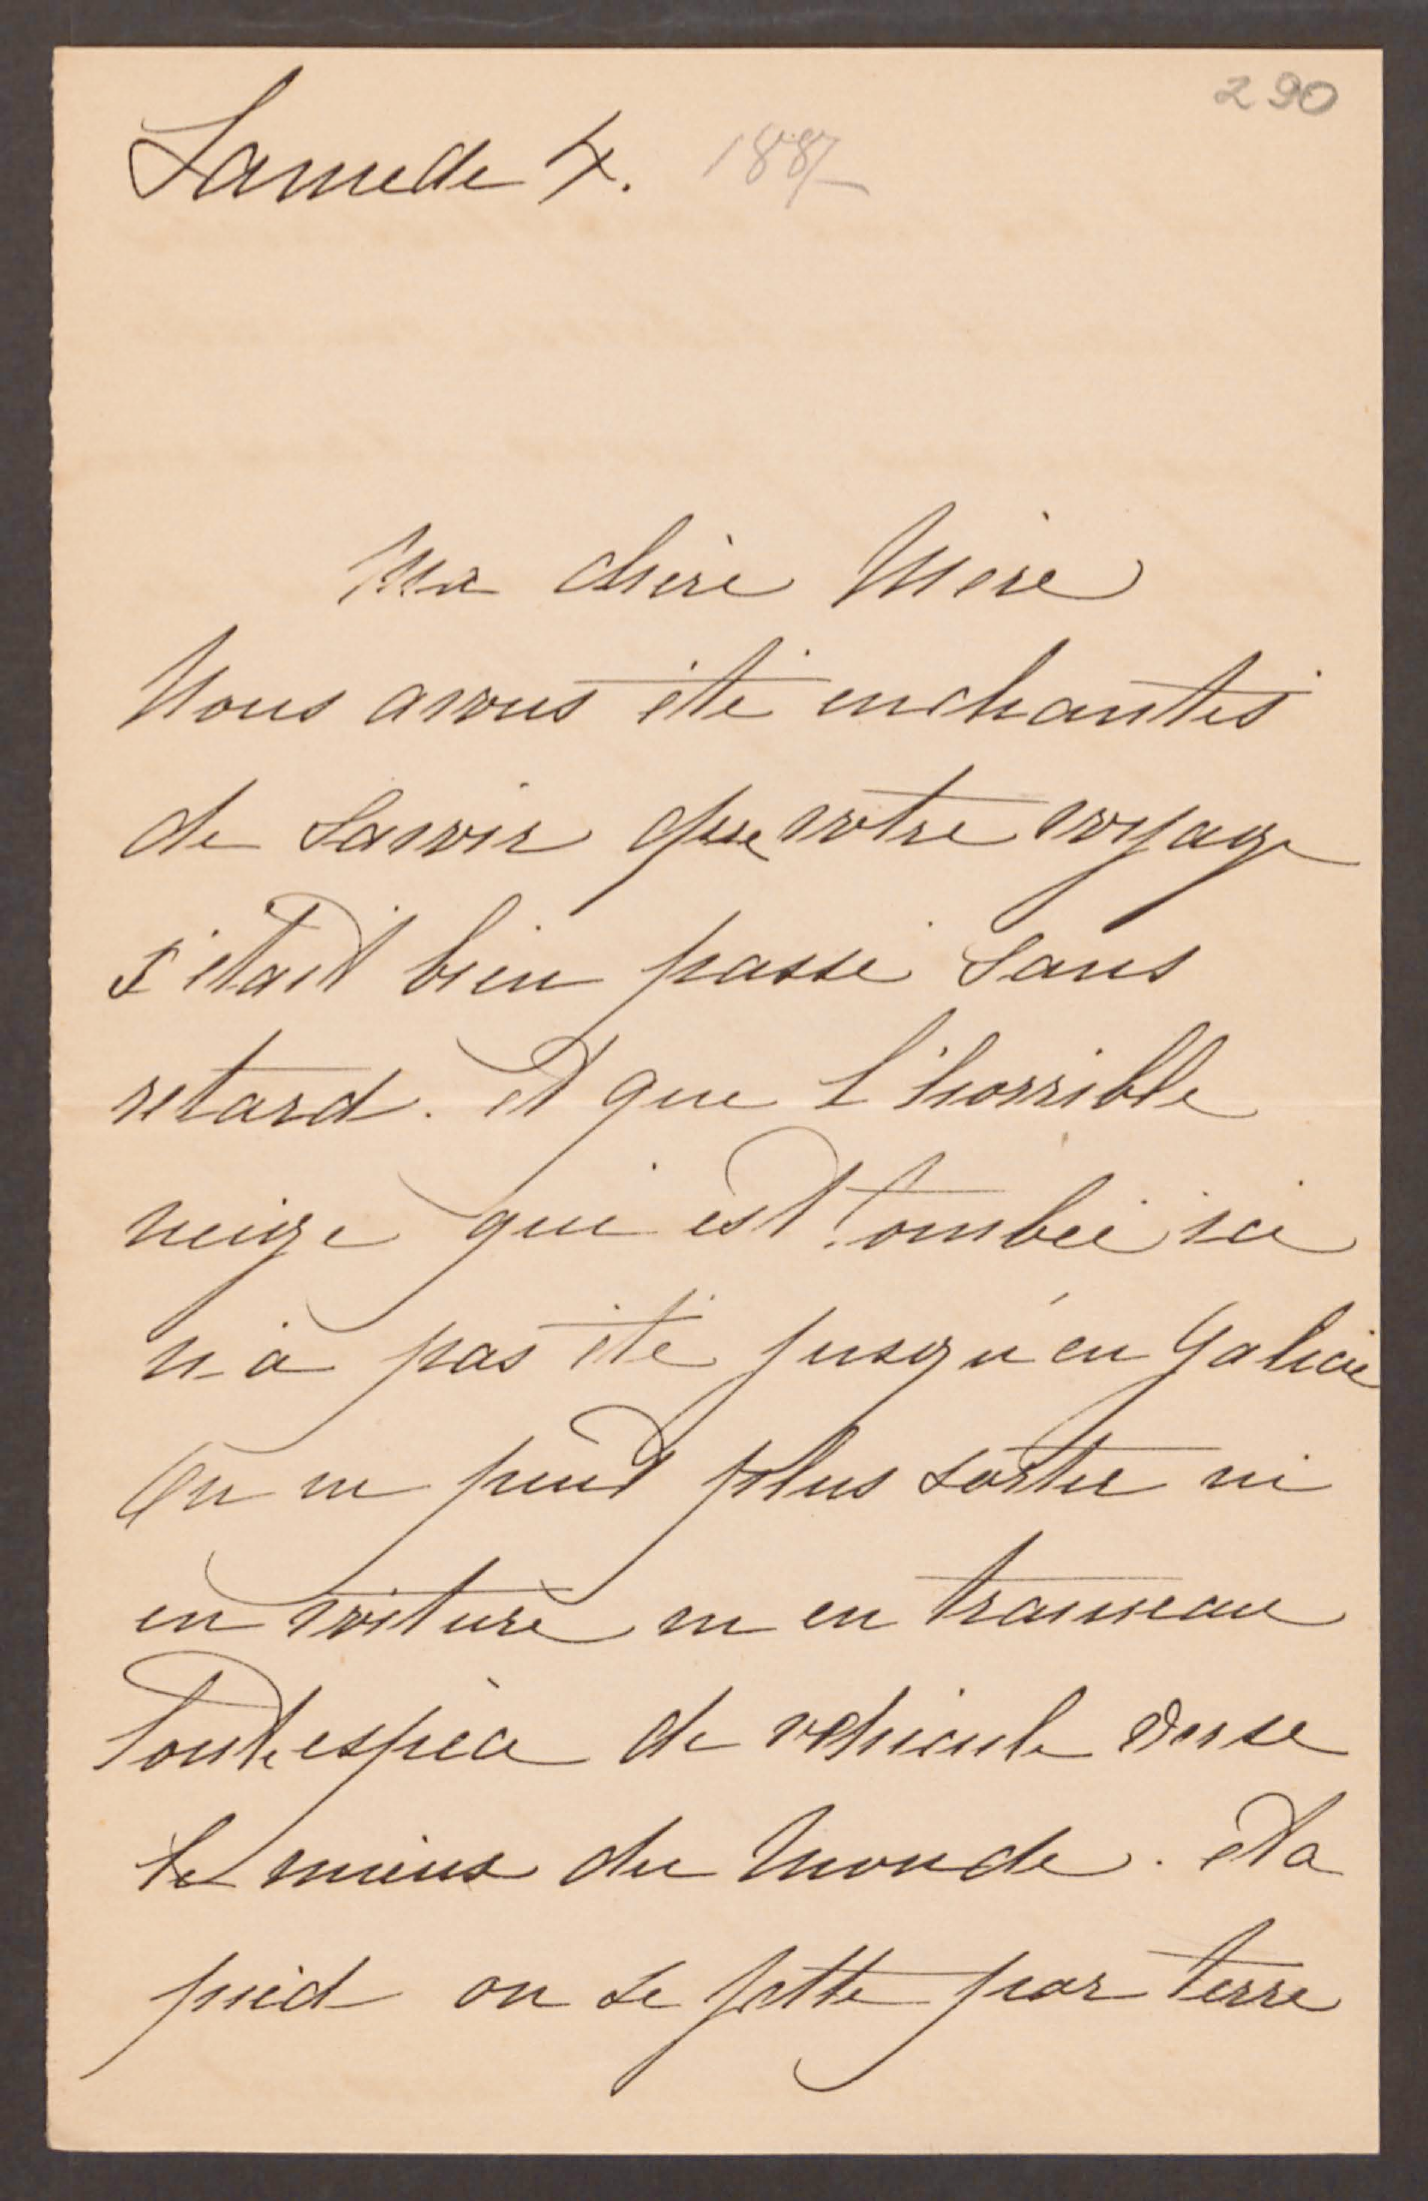 290
Samedi 4. 1887
Ma chère Mère
Nous avons été enchantés
de savoir que votre voyage
s'était bien passé sans
retard. et que l'horrible
neige qui est tombée ici
n'a pas été jusqu'en Galicie
On ne peut plus sortir ni
en voiture ni en traineau
Toute espèce de vehicule verse
le mieux du monde. et a
pied on se jette par terre